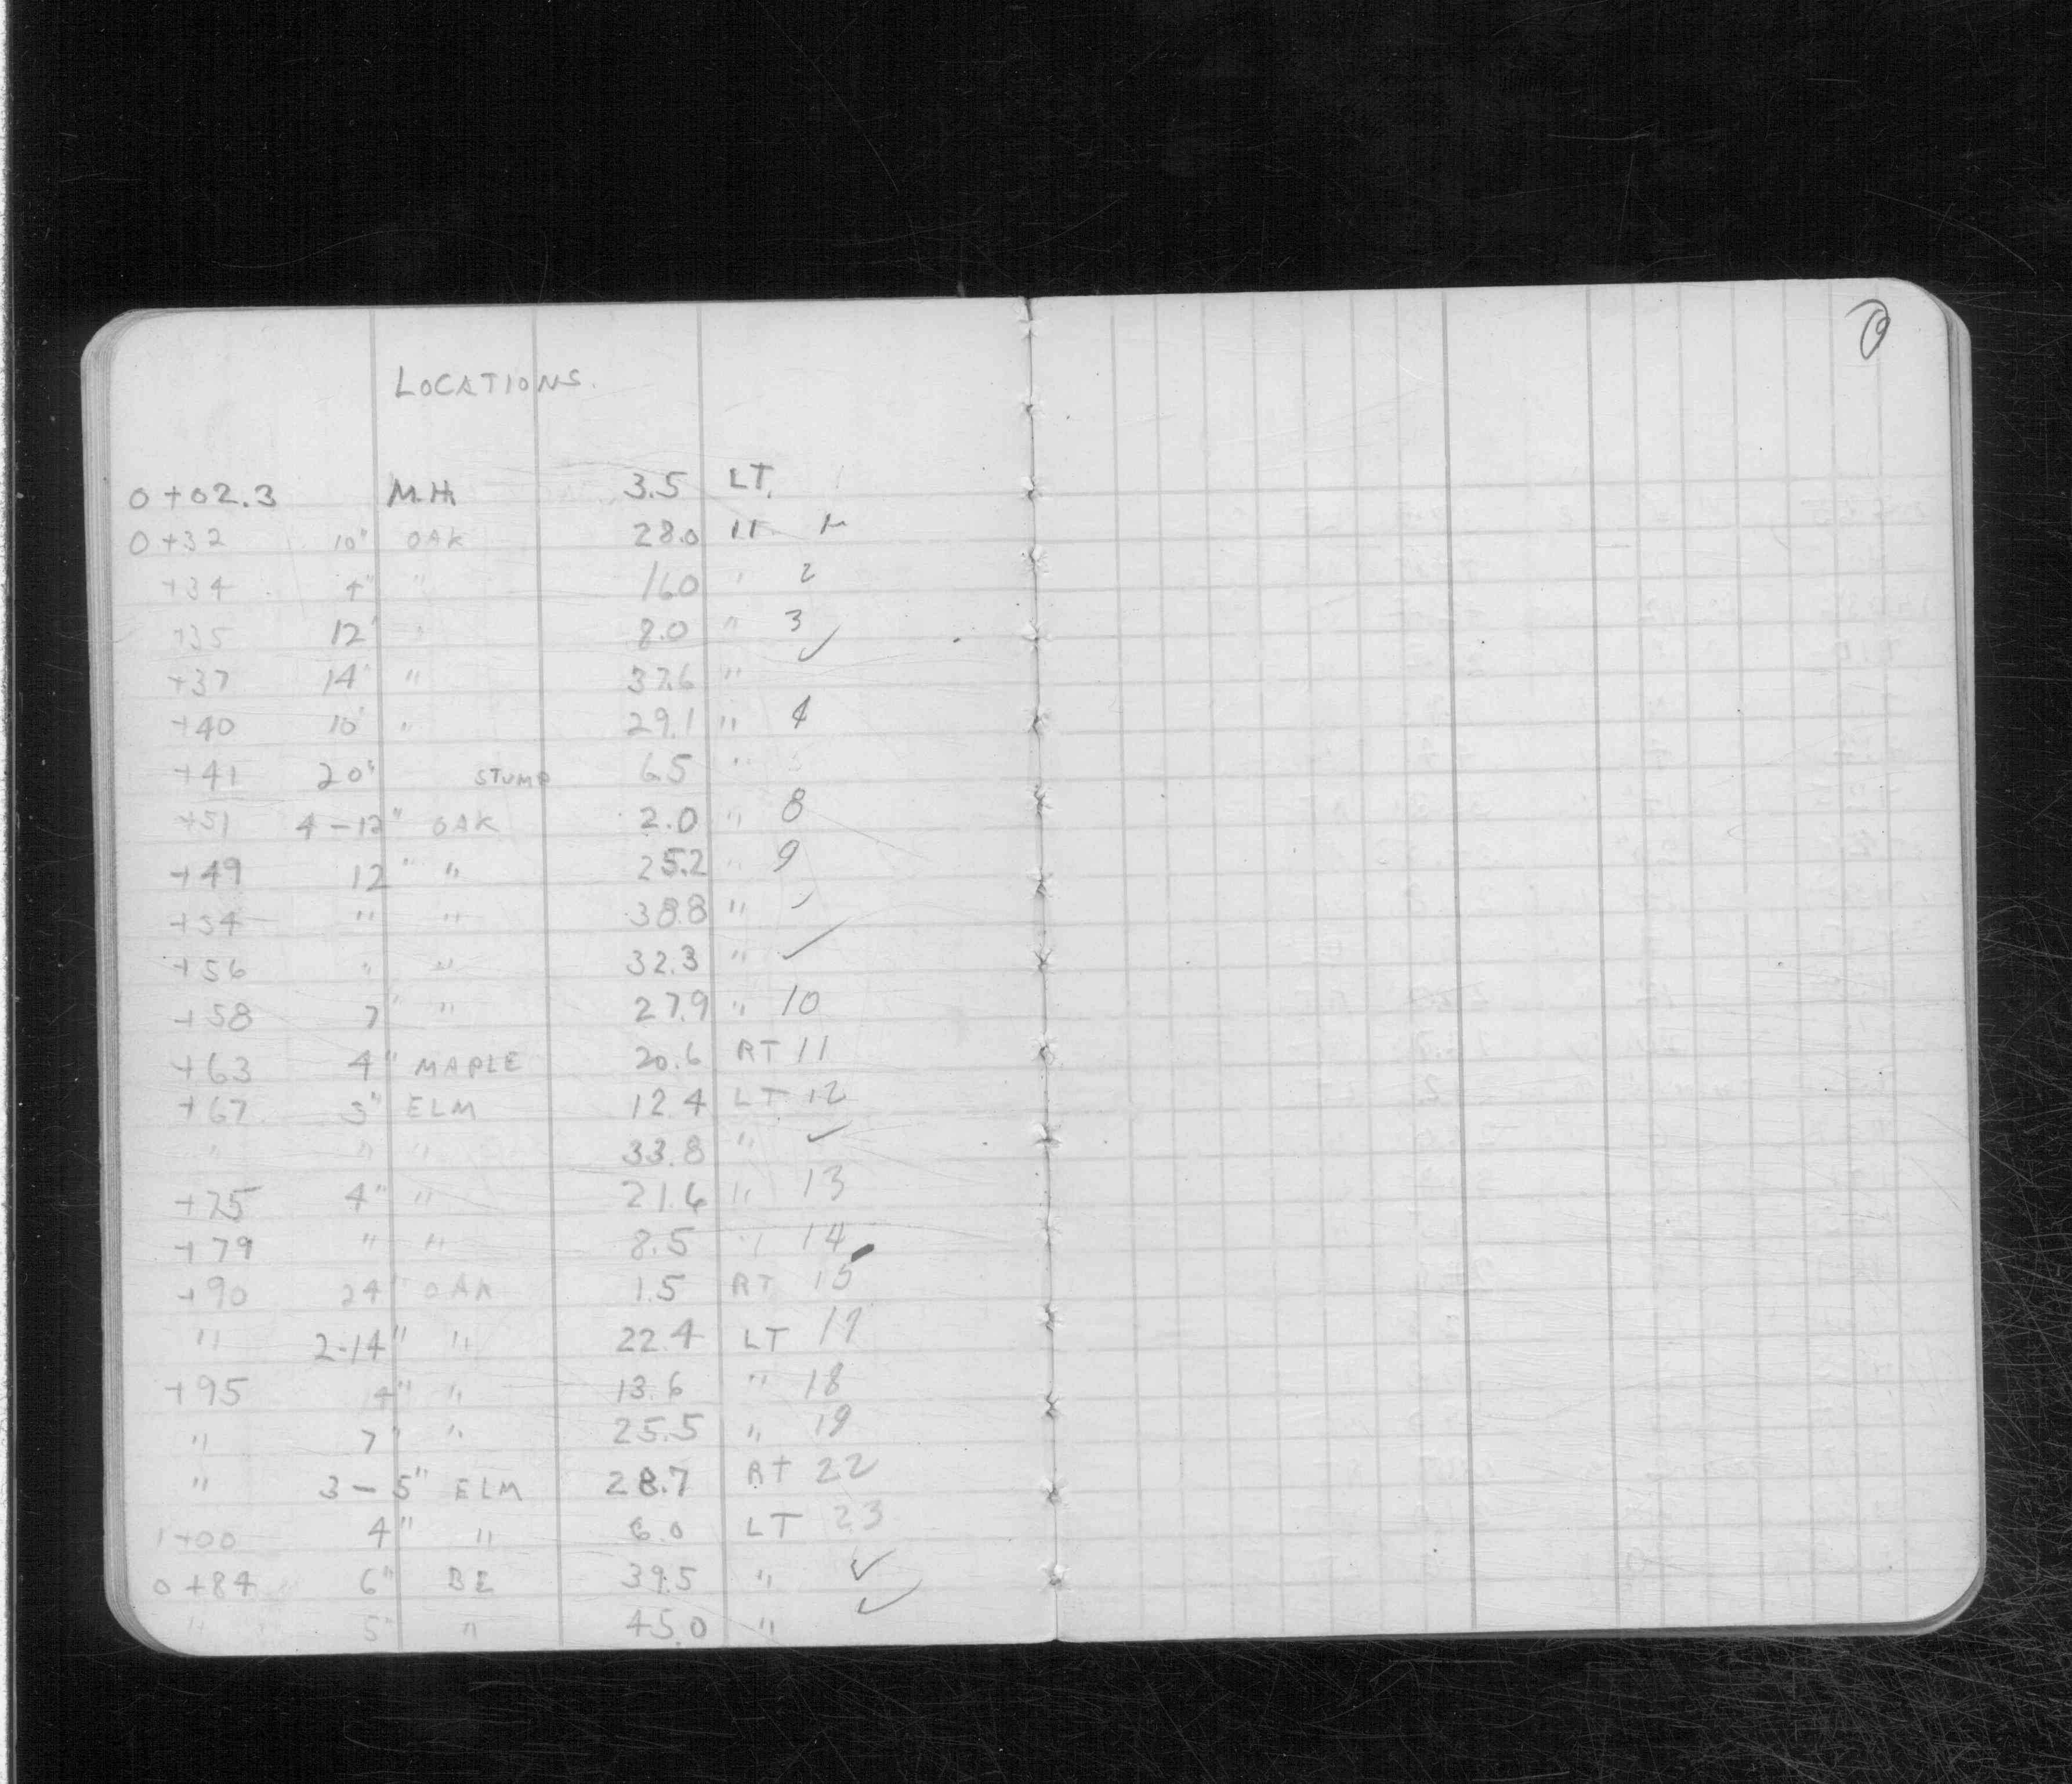 LOCATIONS.
0+02.3 M.H. 3.5 LT.
0+32 10" OAK 28.0 "
+34 4" " 16.0 " 2
+35 12" " 8.0 " 3
+37 14" " 37.6 " ✓
+40 10" " 29.1 " 4
+41 20" STUMP 6.5 " 5
+51 4-12" OAK 2.0 " 8
+49 12" " 25.2 " 9
+54 " " 38.8 " ✓
+56 " " 32.3 " ✓
+58 7" " 27.9 " 10
+63 4" MAPLE 20.6 RT 11
+67 5" ELM 12.4 LT 12
" " " 33.8 " ✓
+75 4" " 21.6 " 13
+79 " " 8.5 " 14
+90 24" OAK 1.5 RT 15
" 2-14" " 22.4 LT 17
+95 4" " 13.6 " 18
" 7" " 25.5 " 19
" 3-5" ELM 28.7 RT 22
1+00 4" " 6.0 LT 23
0+84 6" BE 39.5 " ✓
" 5" " 45.0 " ✓